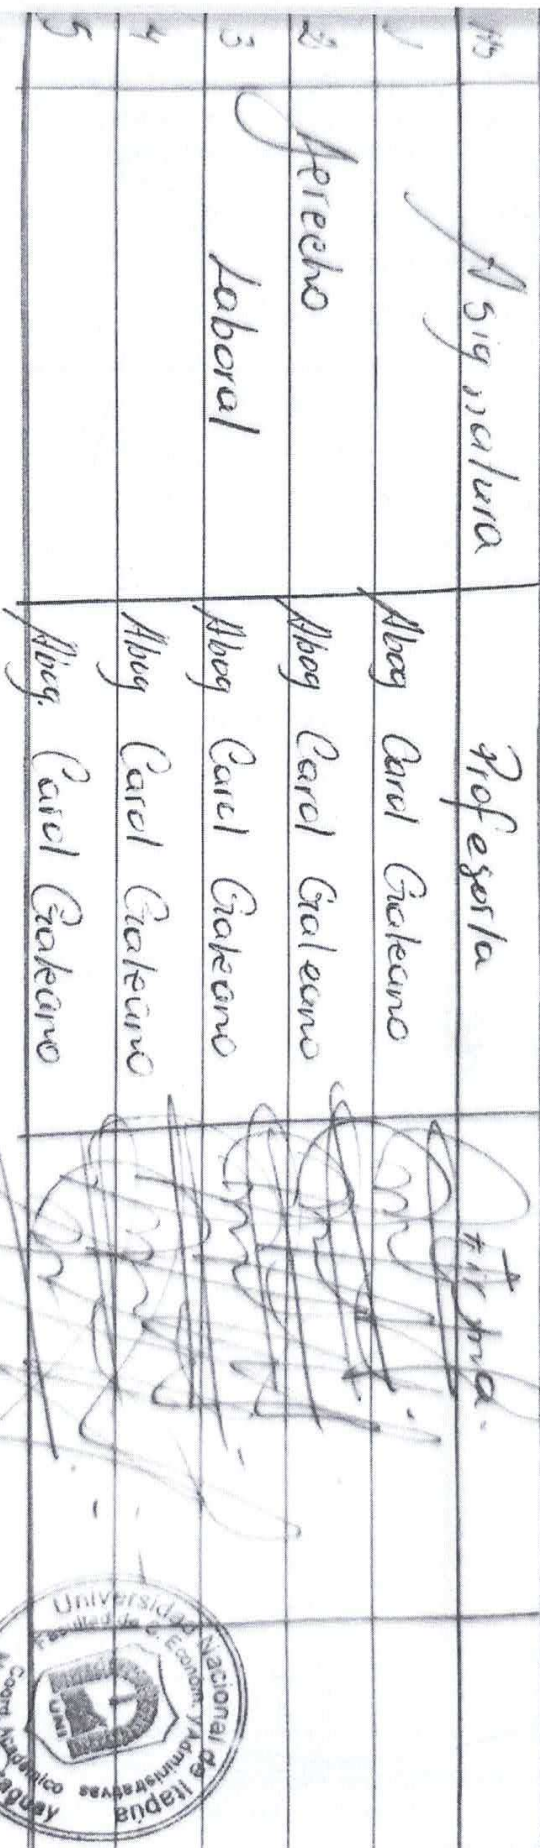 Nº Asignatura Profesor/a Firma.
1 Abog Carol Galeano
2 Derecho Abog Carol Galeano
3 Laboral Abog Carol Galeano
4 Abog Carol Galeano
5 Abog. Carol Galeano
Universidad Nacional de Itapúa
Facultad de C. Econom. y Administrativas
UNI
Coord. Académico